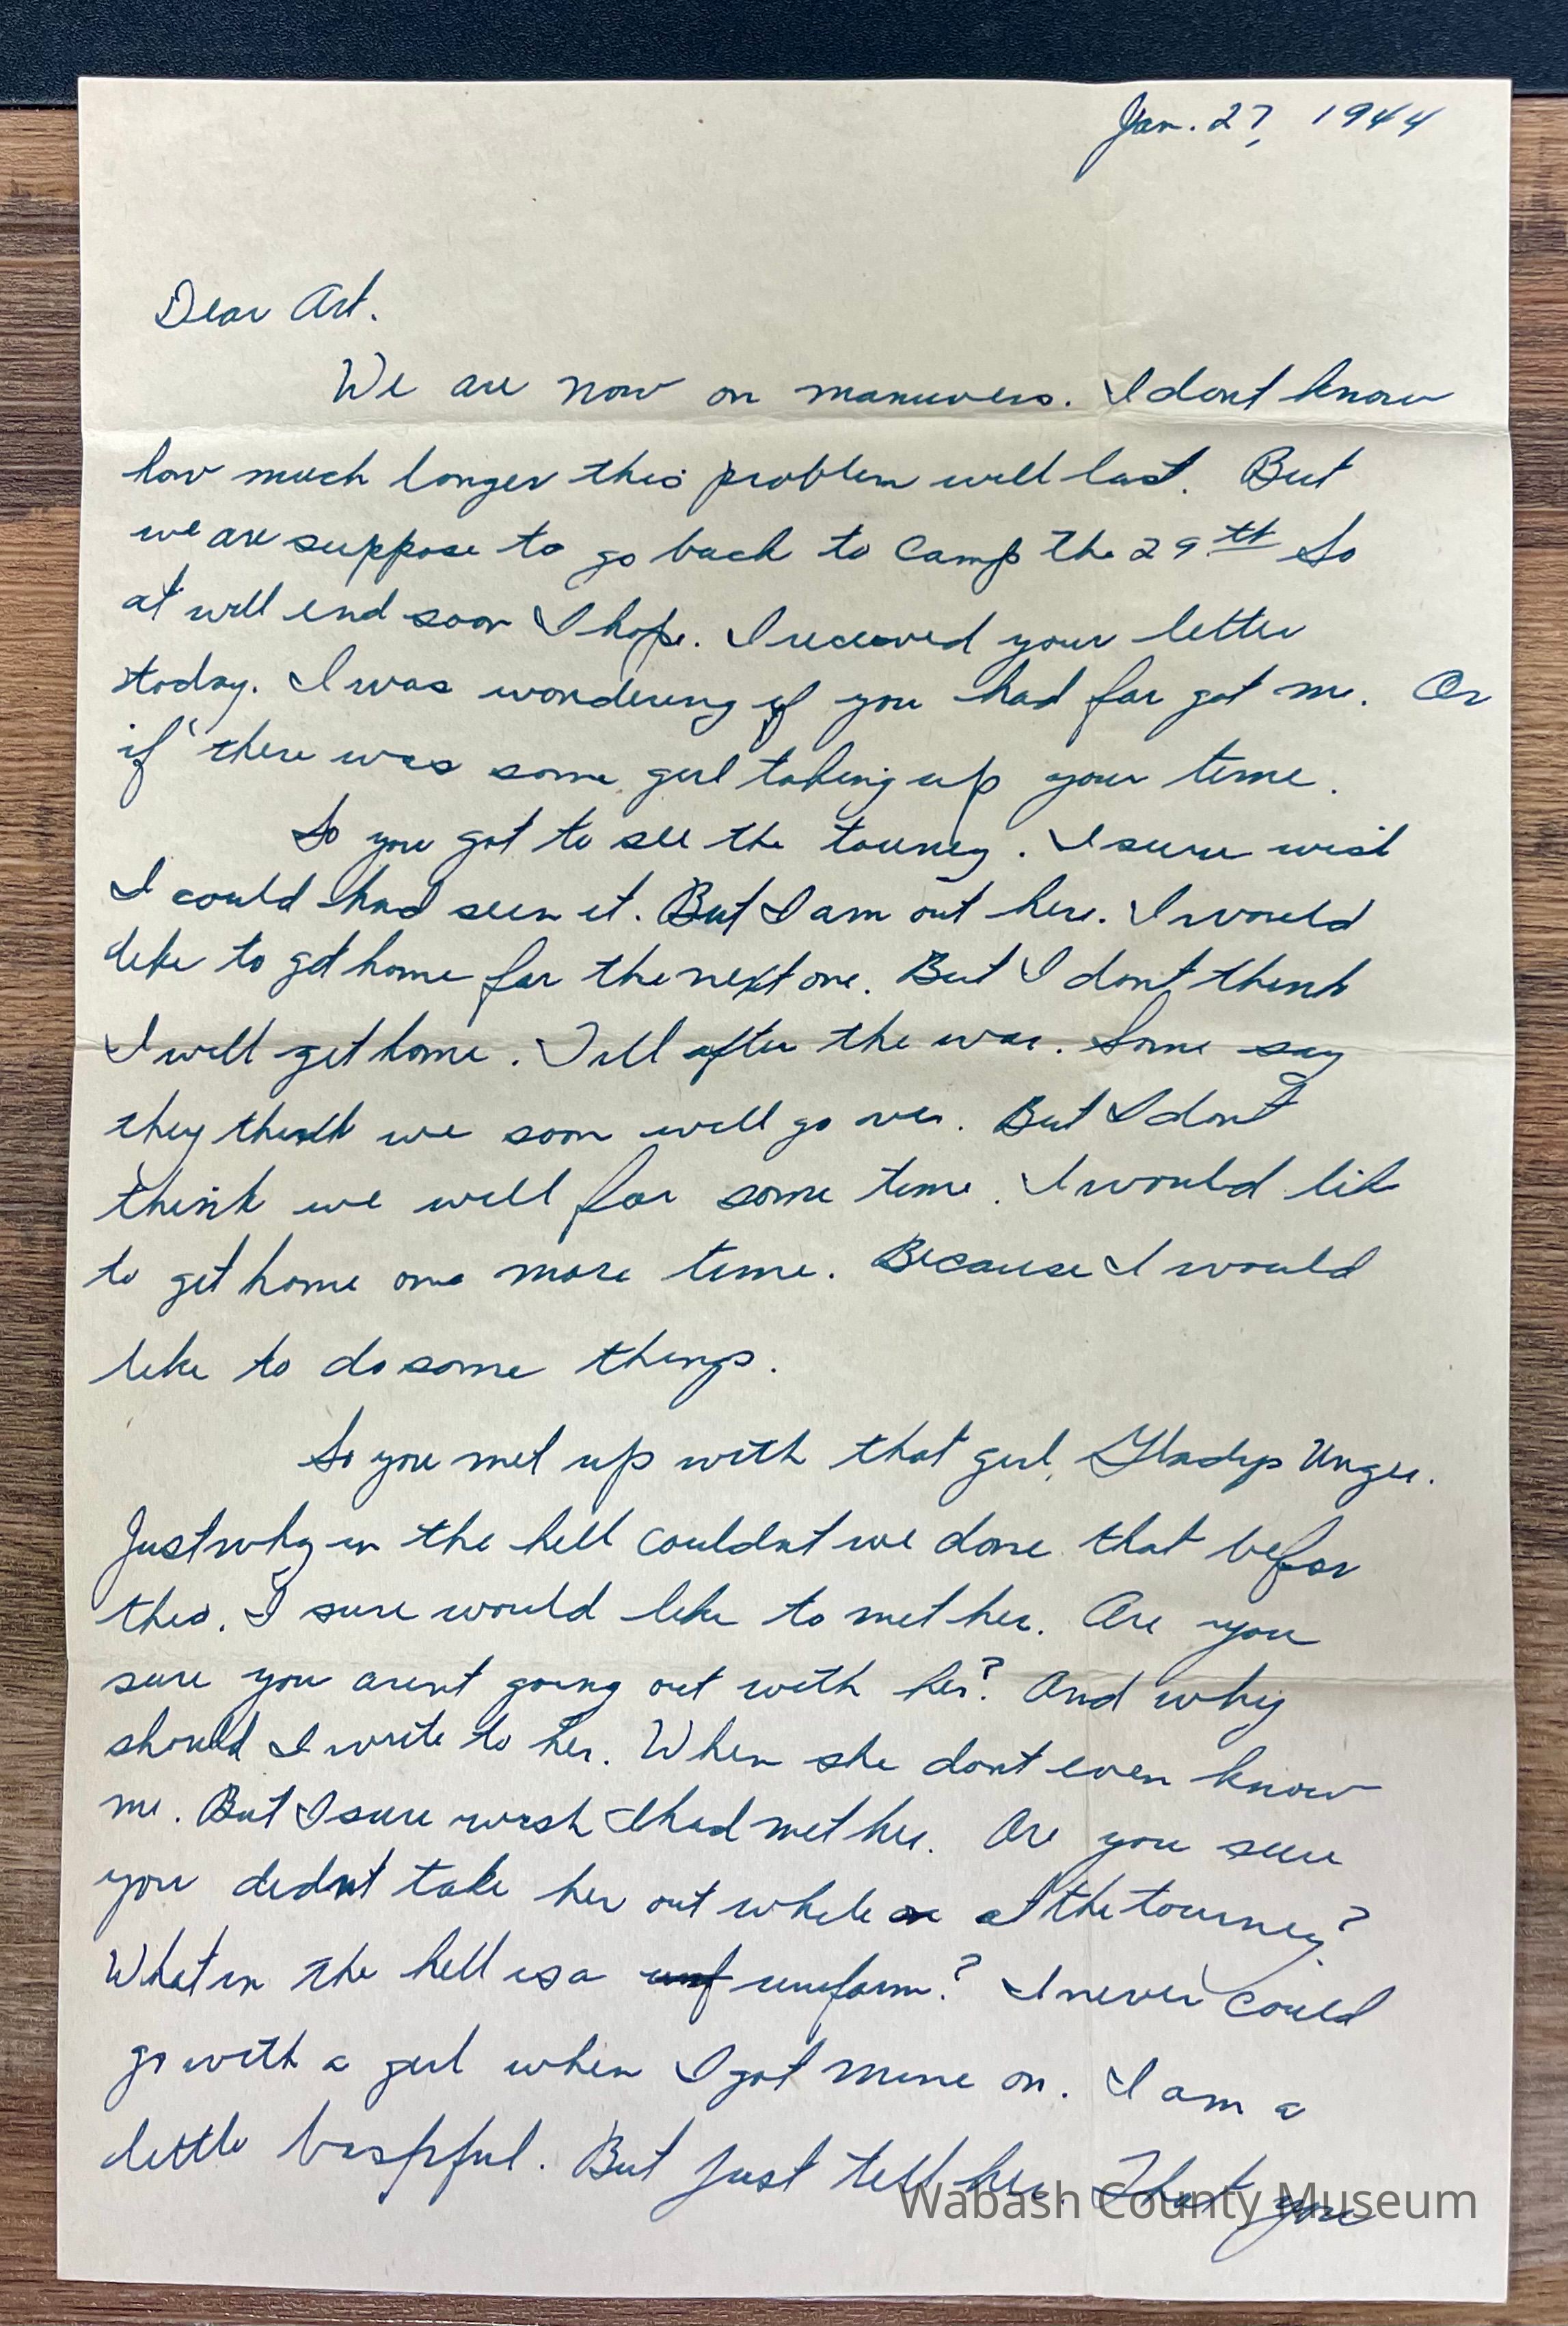 Jan. 27, 1944
Dear Art.
We are now on manuvers. I dont know
how much longer this problem will last. But
we are suppose to go back to Camp the 29th So
it will end soon I hope. I received your letter
today. I was wondering if you had for got me. Or
if there was some girl taking up your time.
So you got to see the tourney. I sure wish
I could had seen it. But I am out here. I would
like to get home for the next one. But I dont think
I will get home. Till after the war. Some say
they think we soon will go over. But I dont
think we will for some time. I would like
to get home one more time. Because I would
like to do some things.
So you met up with that girl, Gladys Unger.
Just why in the hell couldnt we done that befor
this. I sure would like to met her. Are you
sure you arent going out with her? And why
should I write to her. When she dont even know
me. But I sure wish I had met her. Are you sure
you didnt take her out while at the tourney?
What in the hell is a unf uniform? I never could
go with a girl when I got mine on. I am a
little baspful. But just tell her. That you
Wabash County Museum